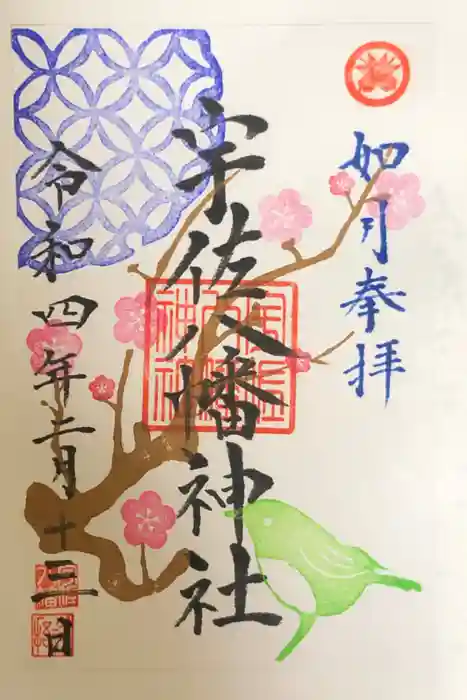 如月奉拝
宇佐八幡神社
令和四年二月十二日